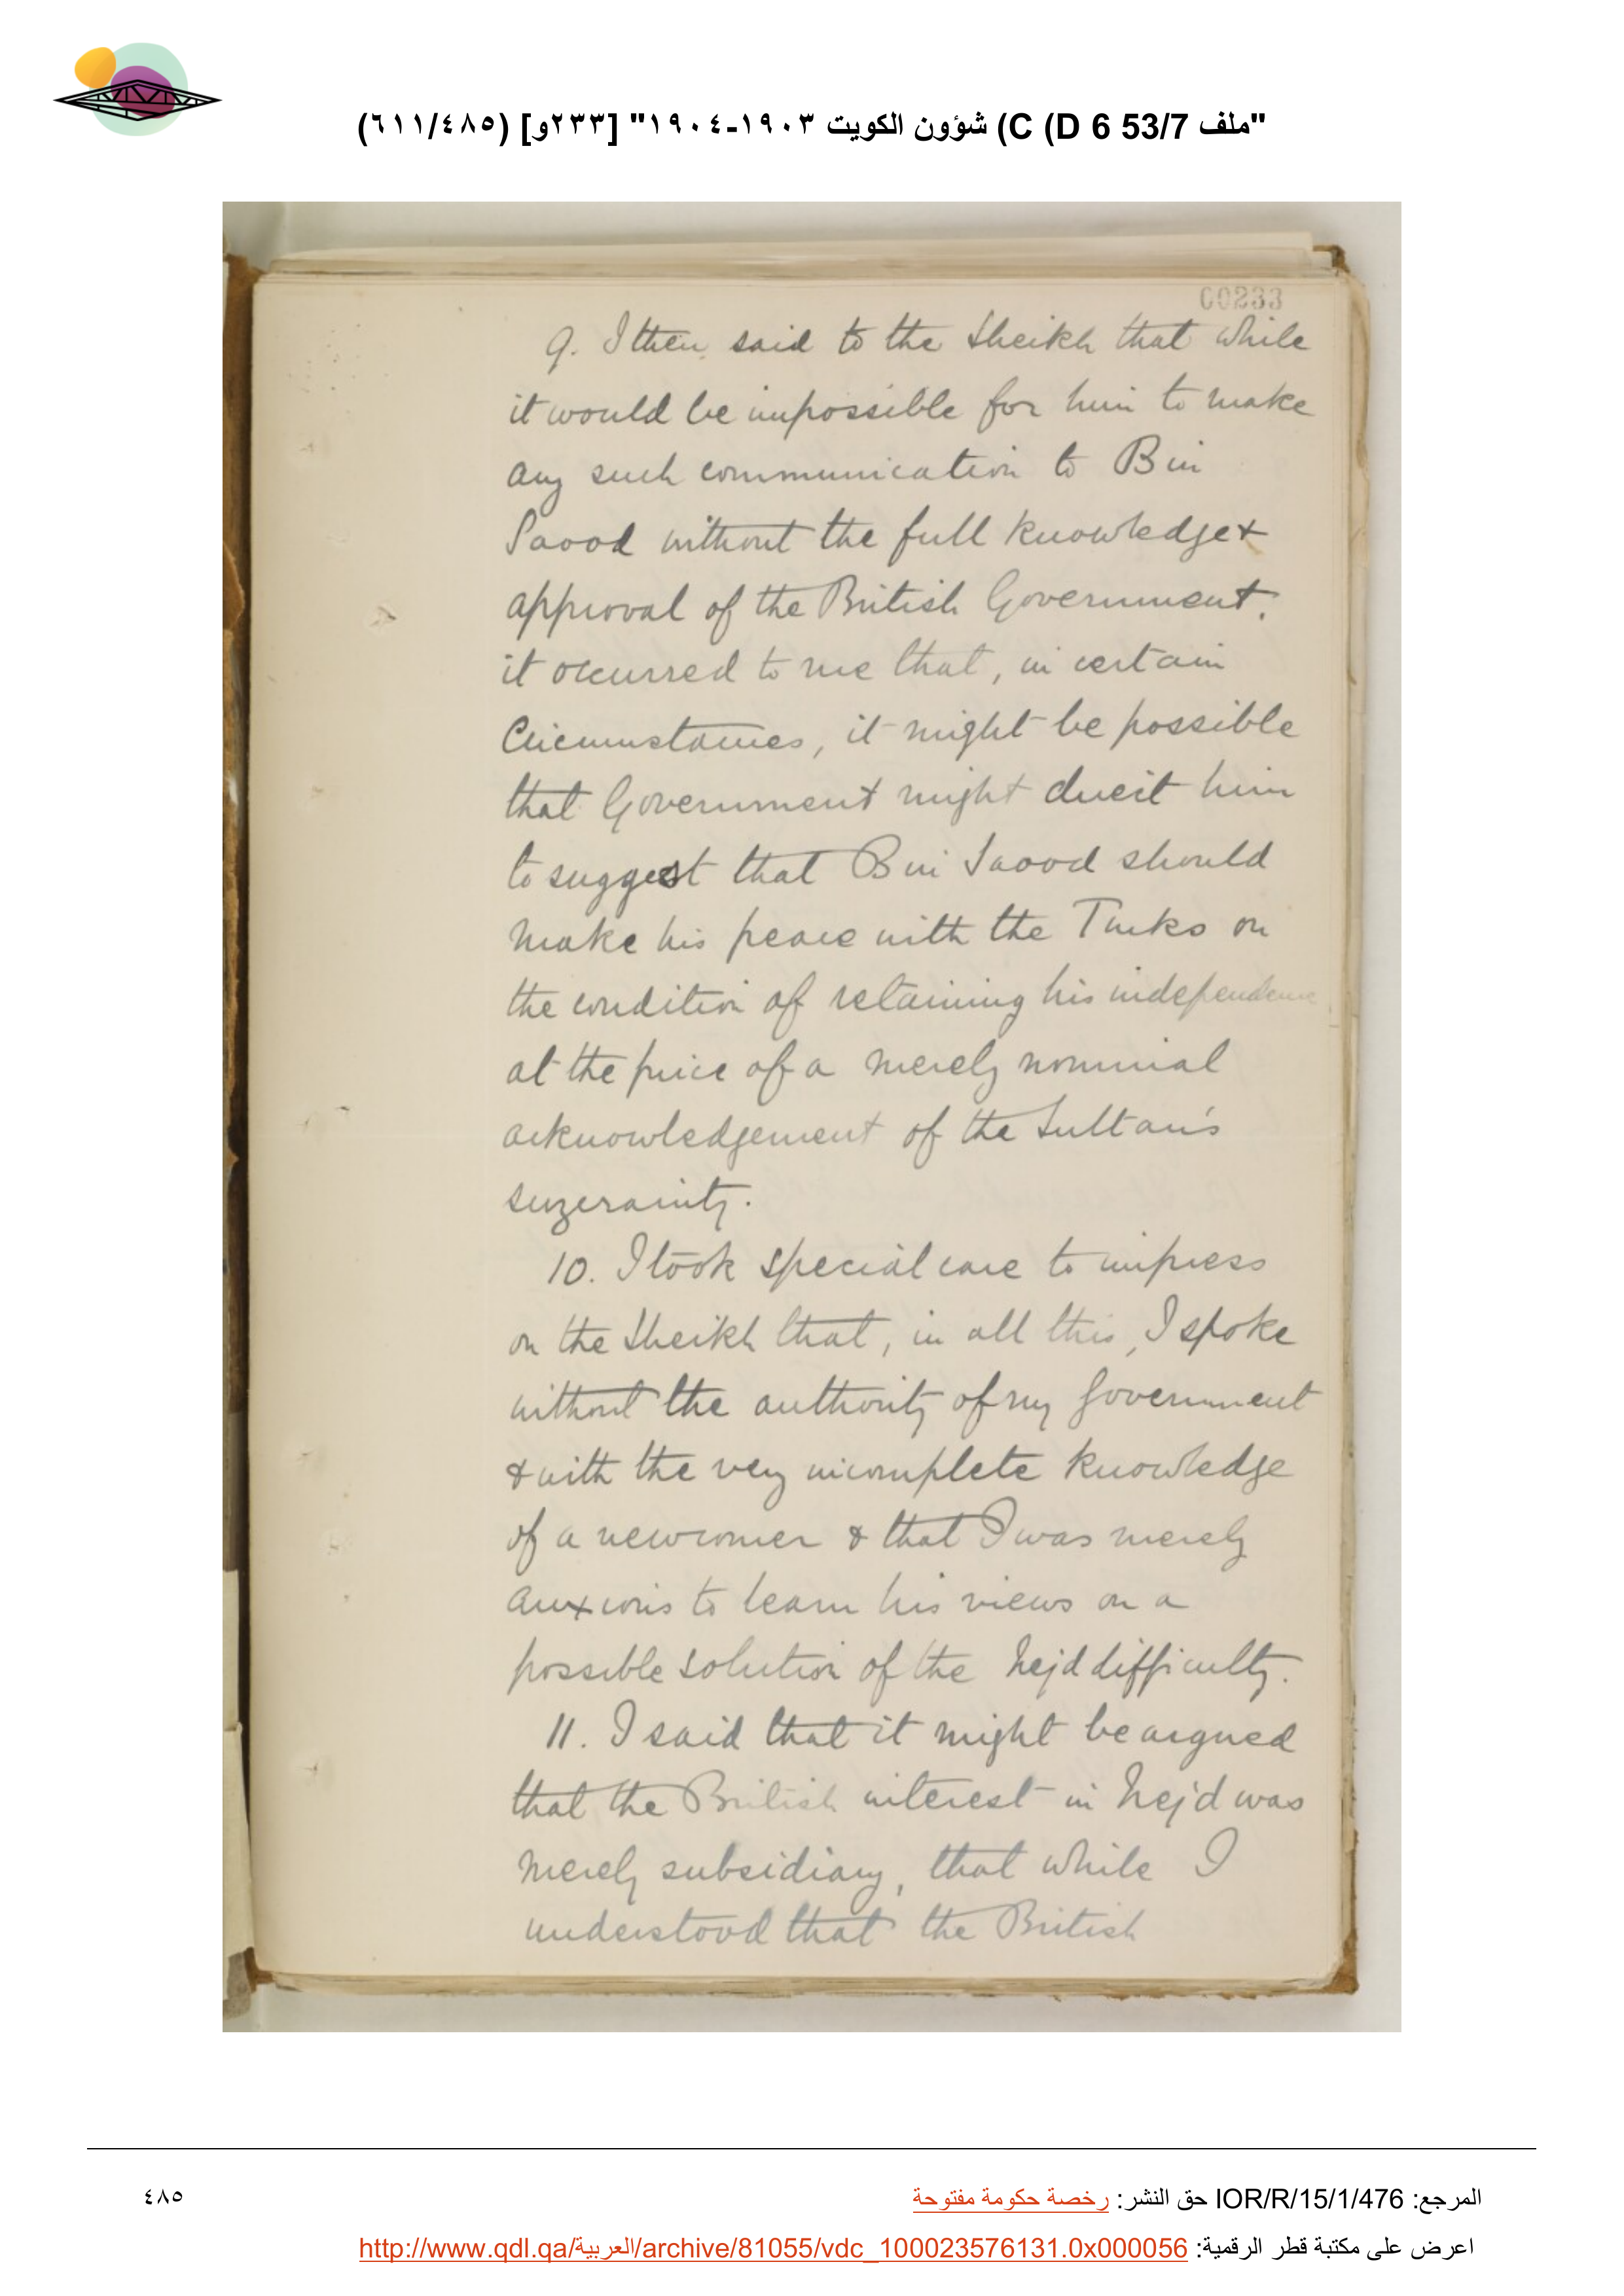 "ملف 53/7 D 6) C) شؤون الكويت ١٩٠٣-١٩٠٤" [٢٣٣و] (٦١١/٤٨٥)
00233
9. I then said to the Sheikh that while
it would be impossible for him to make
any such communication to Bin
Saood without the full knowledge &
approval of the British Government.
it occurred to me that, in certain
Circumstances, it might be possible
that Government might direct him
to suggest that Bin Saood should
make his peace with the Turks on
the condition of retaining his independence
at the price of a merely nominal
acknowledgement of the Sultan's
suzerainty.
10. I took special care to impress
on the Sheikh that, in all this, I spoke
without the authority of my Government
& with the very incomplete knowledge
of a newcomer & that I was merely
anxious to learn his views on a
possible solution of the Nejd difficulty.
11. I said that it might be argued
that the British interest in Nejd was
merely subsidiary, that while I
understood that the British
المرجع: IOR/R/15/1/476 حق النشر: رخصة حكومة مفتوحة
٤٨٥
اعرض على مكتبة قطر الرقمية: http://www.qdl.qa/العربية/archive/81055/vdc_100023576131.0x000056